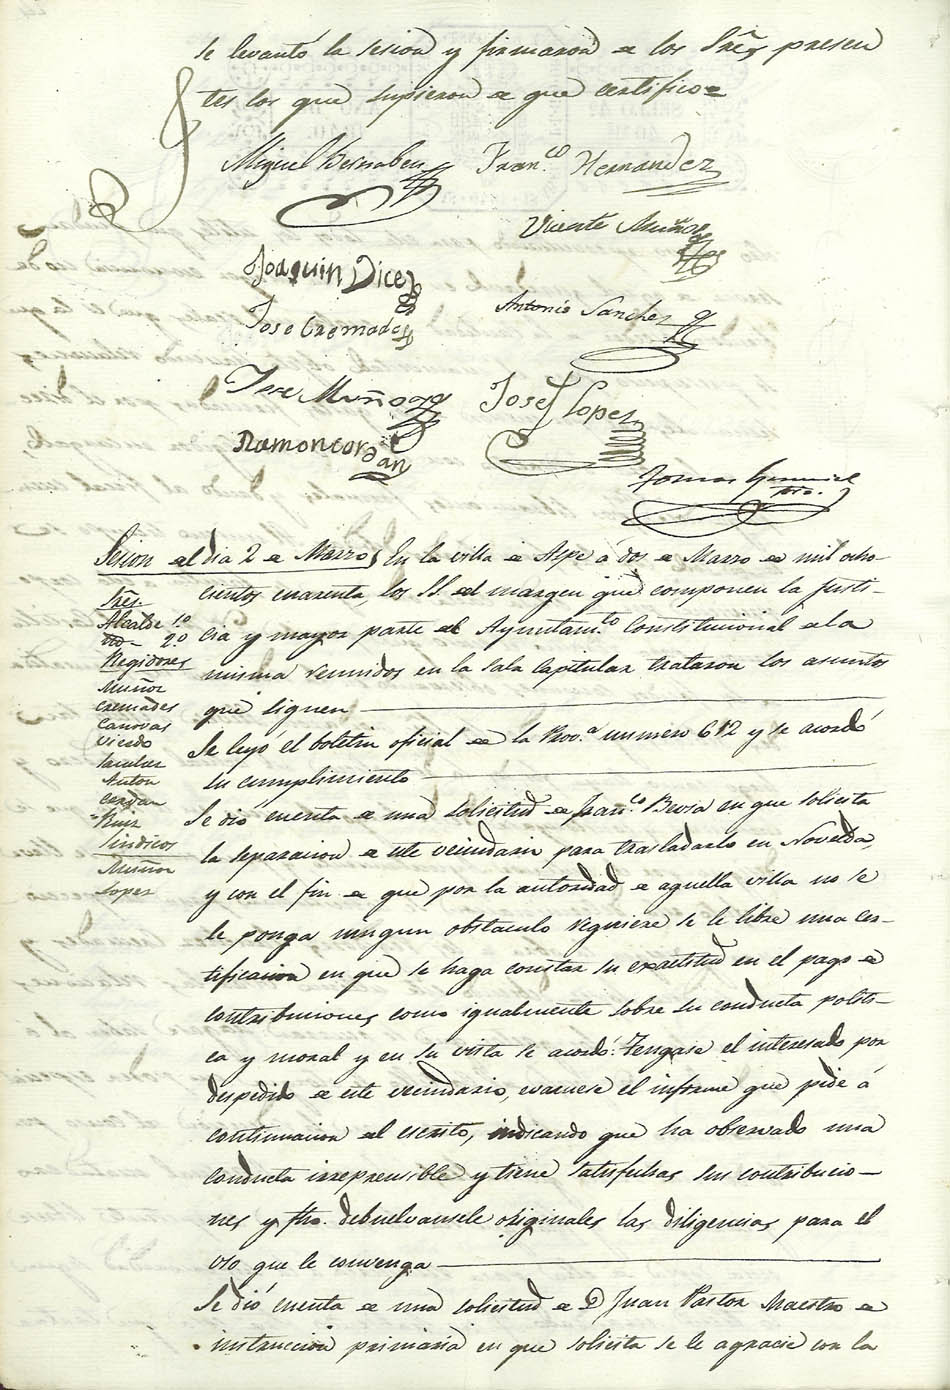 se levantó la sesion y firmaron de los Sres. presen
tes los que supieron de que certifico=
Miguel Bernabeu
Fran.co Hernandez
Vicente Muñoz
Joaquin Dicedo
Antonio Sanchez
Jose Cremades
Jose Muñoz
José Lopez
Ramon Cerdan
Tomas
Srio.
Sesion del dia 2 de Marzo
En la villa de Aspe á dos de Marzo de mil ocho
cientos cuarenta, los SS. del margen que componen la Justi-
cia y mayor parte del Ayuntam.to Constitucional de la
misma reunidos en la sala capitular trataron los asuntos
que siguen
Sres.
Alcalde 1.o
Ydo 2.o
Regidores
Muñoz
Cremades
Canovas
Vicedo
Sanchez
Anton
Cerdan
Ruiz
Sindicos
Muñoz
Lopez
Se leyó el boletin oficial de la Prov.a numero 612 y se acordó
su cumplimiento
Se dió cuenta de una solicitud de Fran.co en que solicita
la separacion de este vecindario para trasladarlo en Novelda,
y con el fin de que por la autoridad de aquella villa no se
le ponga ningun obstaculo requiere se le libre una cer-
tificacion en que se haga constar su exactitud en el pago de
contribuciones como igualmente sobre su conducta politi-
ca y moral y en su vista se acordó: Tengase el interesado por
despedido de este vecindario, evacuese el informe que pide á
continuacion del escrito, indicando que ha observado una
conducta irreprensible y tiene satisfechas sus contribucio-
nes y fho. debuelvansele originales las diligencias para el
uso que le convenga
Se dió cuenta de una solicitud de D Juan Pastor Maestro de
instruccion primaria en que solicita se le agracie con la